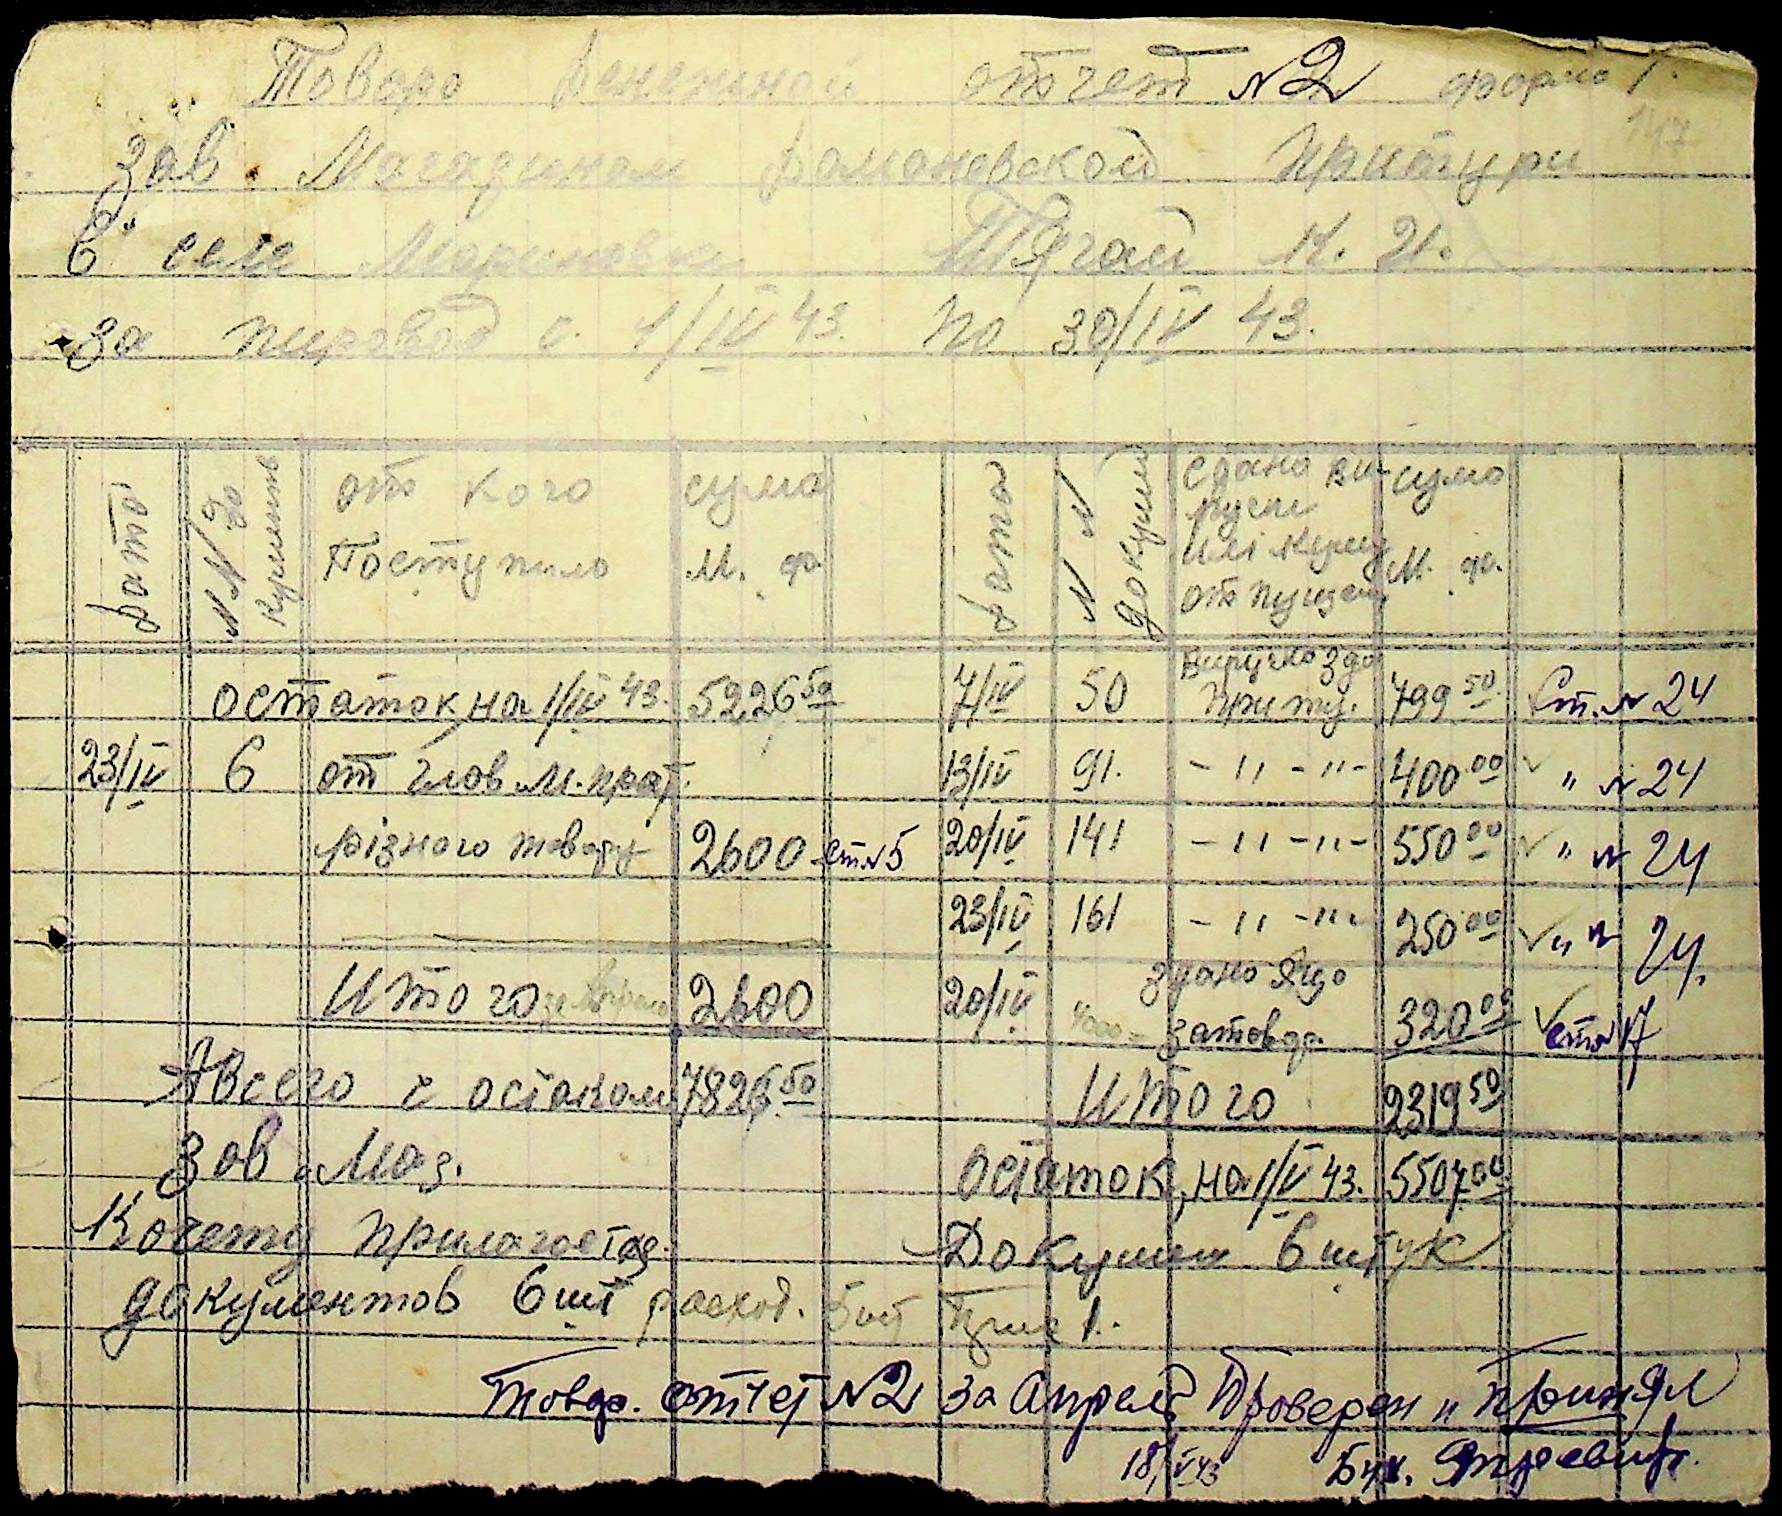 Товаро денежной отчет № 2 форма 1.
Зав. Магазином Романовской
В селе Мариновка Тягай
за пириод с 1/IV 43. по 30/IV 43.
дата №№ документ от кого поступило сума М. ф. дата №№ докуммен сдано ви- ручки или кому отпущено сумо М. ф.
остаток на 1/IV 43. 5226 50 7/IV 50 Виручка зда 799 50 Ст. № 24
23/IV 6 от глов. М. 13/IV 91. -"-"- 400 00 " № 24
різного товару 2600 ст № 5 20/IV 141 -"-"- 550 00 " № 24
23/IV 161 -"-"- 250 00 " № 24.
Итого 2600 20/IV 4000 = здано Яцо за товар. 320 00 ст № 17
А всего с остаком 7826 50 Итого 2319 50
Зав Маг. остаток на 1/V 43. 5507 00
К очету прилагается. Докумен 6 штук
документов 6 шт расход. 5 шт 1.
Товдо. отчет № 2 за Апрель Проверен и принял
18/V 43 Бух.